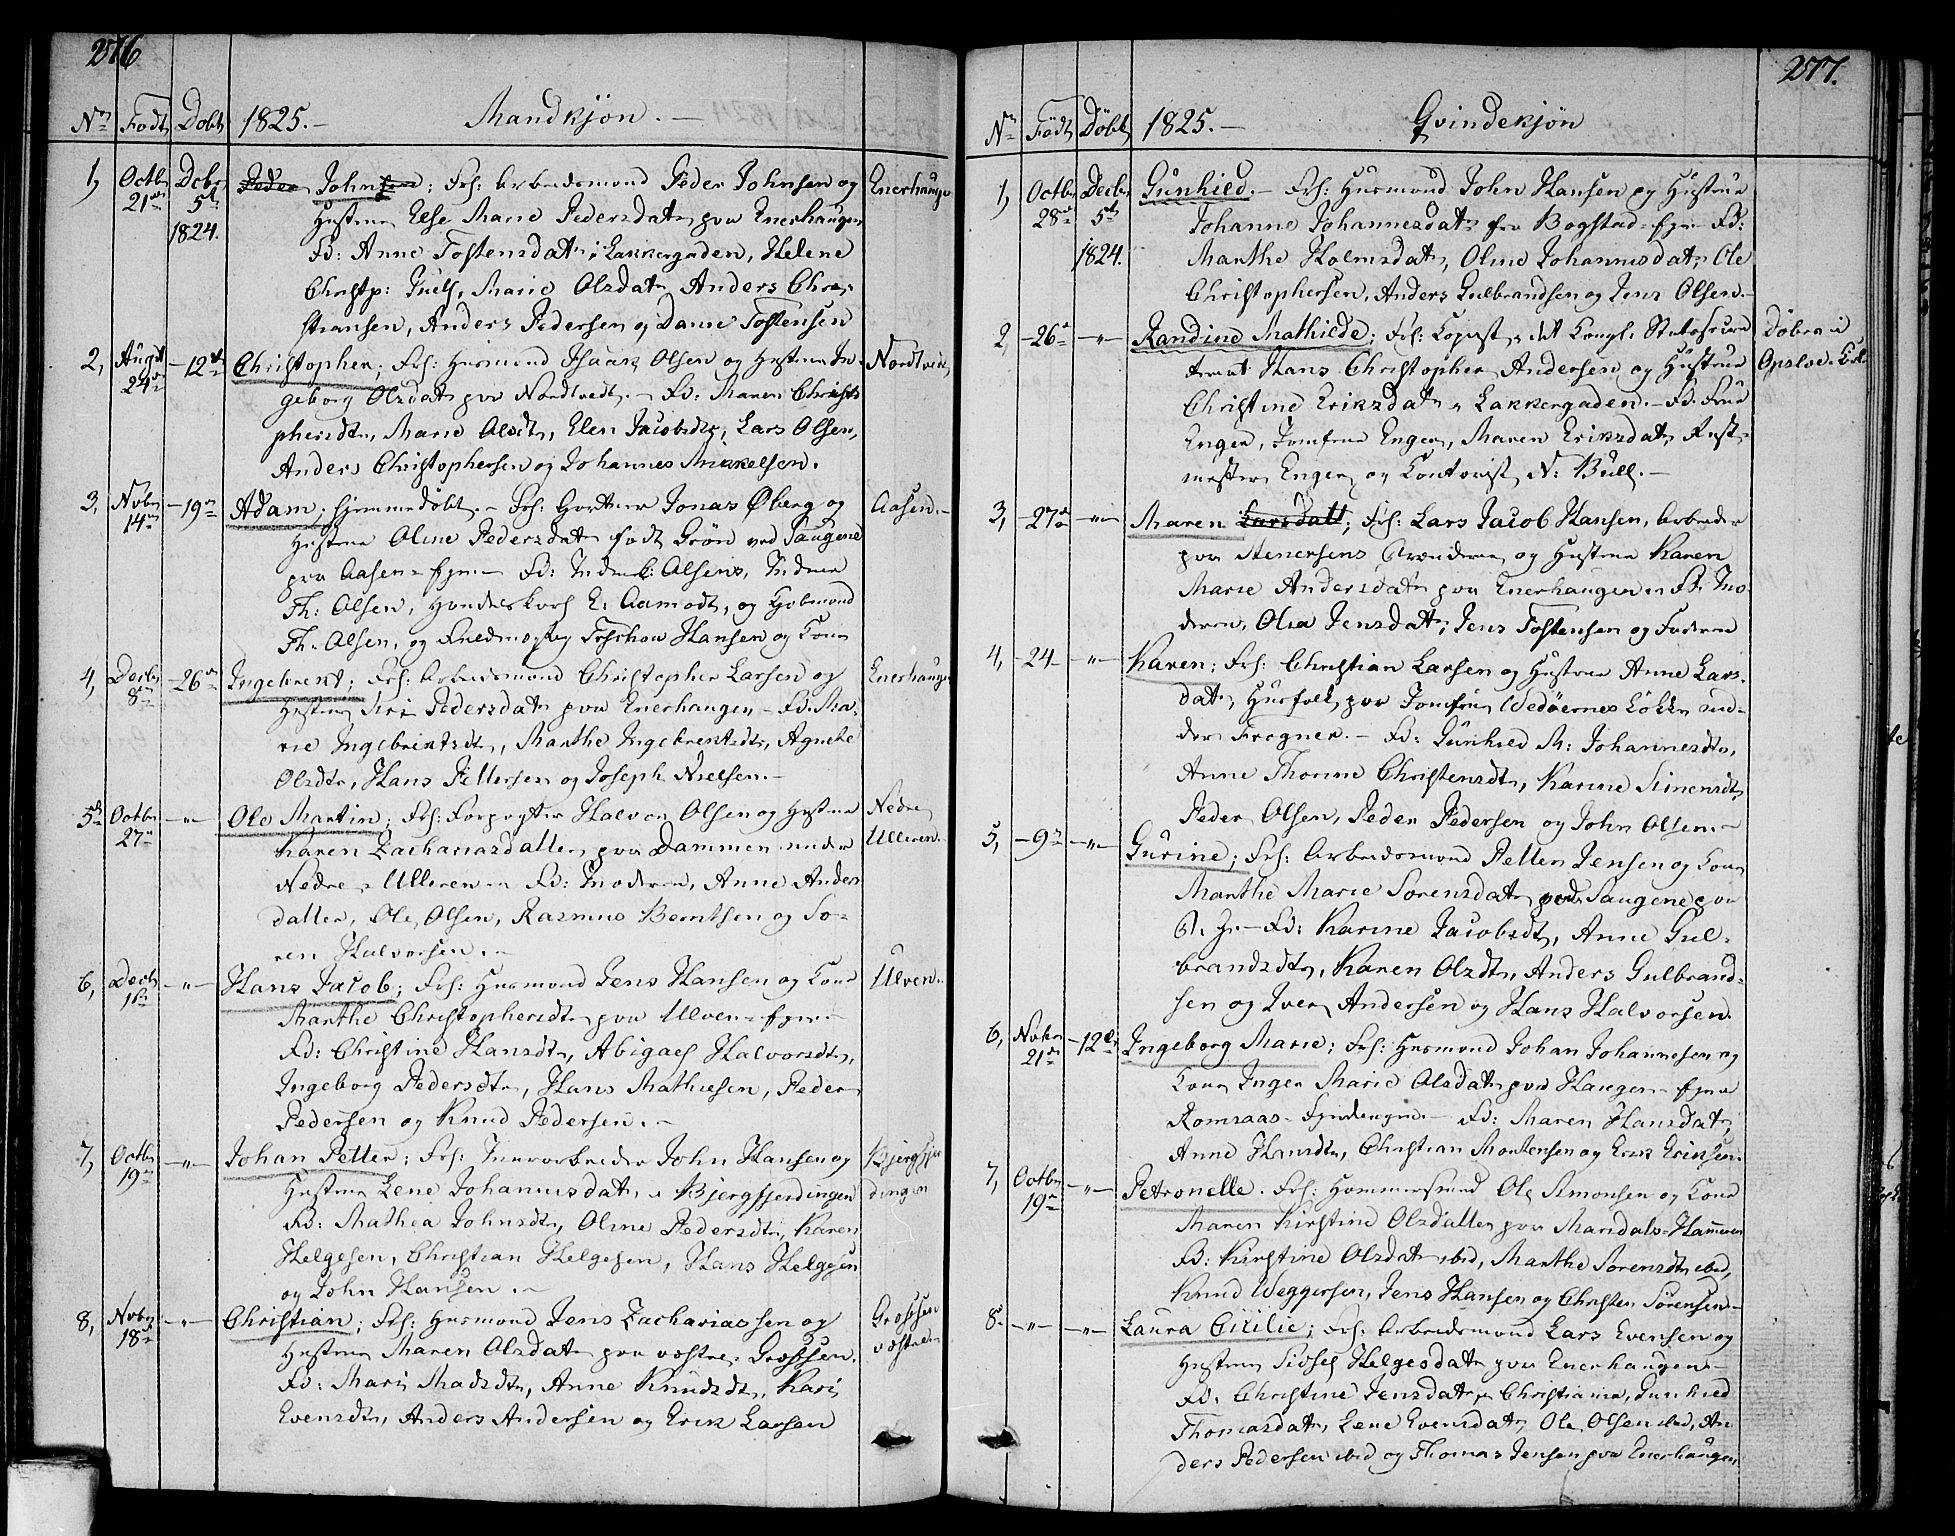 276
Nr Født Døbt 1825.- Mandkjøn.-
1, Octbr 21de Dcbr 5te 1824. Peder Johnsen; Frs: Arbeidsmand Peder Johnsen og Enerhaugen
Hustrue Else Marie Pedersdatr paa Enerhaugen
Fd: Anne Tostensdatr i Lakkergaden, Helene
Christp: Juell, Marie Olsdatr, Anders Chri-
stiansen, Anders Pedersen og Tostensen
2, Augst 24de -12te Christopher; Frs: Husmand Isaack Olsen og Hustrue In- Nordtvedt
geborg Olsdatr paa Nordtvedt.- Fd: Maren Christo
phersdtr, Marie Olsdtr, Elen Jacobsdtr, Lars Olsen,
Anders Christophersen og Johannes Mikkelsen.
3, Novbr 14de -19de Adam; hjemmedøbt.- Frs: Gartner Jonas Øberg og Aasen.-
Hustrue Oline Pedersdatr født Grøn ved Saugene
paa Aasen Fd: Olsens,
Th: Olsen, E: Aamodt, og
Th. Olsen, og Hansen og Kone
4, Decbr 8de -26de Ingebrent; Frs: Arbeidsmand Christopher Larsen og Enerhaugen
Hustrue Siri Pedersdatr paa Enerhaugen - Fd: Ma-
rie Ingebrentsdtr, Marthe Ingebrentsdtr, Agnethe
Olsdtr, Hans Pettersen og Joseph Nielsen.-
5, Octbr 27de -"- Ole Martin; Frs: Forpagter Halvor Olsen og Hustrue Nedre
Karen Zachariasdatter paa Dammen under Ulleren.
Nedre Ulleren - Fd: Moderen, Anne Anders
datter, Ole Olsen, Rasmus Berntsen og So-
ren Halvorsen.-
6, Decbr 16de -"- Hans Jacob; Frs: Husmand Jens Hansen og Kone Ulven.
Marthe Christophersdtr paa Ulven
Fd: Christine Hansdtr, Abigael Halvorsdtr,
Ingeborg Pedersdtr, Hans Mathiesen, Peder
Pedersen og Knud Pedersen.-
7, Octbr 19de -"- Johan Petter; Frs: John Hansen og Bjergfjer
Hustrue Lene Johannesdatr i Bjergfjerdingen dingen
Fd: Mathea Johnsdtr, Oline Pedersdtr, Karen
Helgesen, Christian Helgesen, Hans Helgesen
og John Hansen.-
8, Novbr 18de -"- Christian; Frs: Husmand Jens Zachariassen og Grossen
Hustrue Maren Olsdatr paa vestre Grossen. vestre
Fd: Mari Madsdtr, Anne Knudsdtr, Kari
Evensdtr, Anders Andersen og Erik Larsen
277.
Nr Født Døbt 1825.- Qvindekjøn
1, Octbr 28de Decbr 5te 1824. Gunhild.- Frs: Husmand John Hansen og Hustrue
Johanne Johannesdatr fra Bogstad Fd:
Marthe Holmsdatr, Oline Johannesdatr, Ole
Christophersen, Anders Gulbrandsen og Jens Olsen.-
2, -26de -"- Randine Mathilde; Frs: Copist i det Kongl: Statssecre Døbt i
teriat Hans Christopher Andersen og Hustrue Opsloe Kirke
Christine Eriksdatr i Lakkergaden.- Fd: Frue
Enger, Jomfrue Enger, Maren Eriksdatr
mester Enger og Contorist N: Bull.-
3, -27de -"- Maren Larsdatt; Frs: Lars Jacob Hansen, Arbeider
paa Stenersens og Hustrue Karen
Marie Andersdatr paa Enerhaugen Fd: Mo-
deren, Olea Jensdatr, Jens Tostensen og Faderen
4, -24 -"- Karen; Frs: Christian Larsen og Hustrue Anne Lars-
datr, Husfolk paa Jomfru Wedøernes Løkke un-
der Frogner.- Fd: Gunhild M: Johannesdtr,
Anne Thorine Christensdtr, Karine Simensdtr,
Peder Olsen, Peder Pedersen og John Olsen.-
5, -9de -"- Gurine; Frs: Arbeidsmand Petter Jensen og Kone
Marthe Marie Sorensdatr ved Saugene paa
Fd: Karine Jacobsdtr, Anne Gul-
brandsdtr, Karen Olsdtr, Anders Gulbrand-
sen og Iver Andersen og Hans Halvorsen.
6, Novbr 21de -12te Ingeborg Marie; Frs: Husmand Johan Johannesen og
Kone Inger Marie Olsdatr paa Haugen
Romsaas Fd: Maren Hansdatr,
Anne Hansdtr, Christian Mortensen og Erik Eriksen.
7, Octbr 19de -"- Petronelle. Frs: Hammersmed Ole Simonsen og Kone
Maren Kirstine Olsdatter paa Maridals-Hammeren
Fd: Kirstine Olsdatr ibid, Marthe Sorensdtr ibid,
Knud Weggersen, Jens Hansen og Christen Sörensen-
8- -"- -"- Laura Cicilie; Frs: Arbeidsmand Lars Evensen og
Hustrue Sidsel Helgesdatr paa Enerhaugen-
Fd. Christine Jensdatr i Christiania, Gunhild
Thomasdatr, Lene Evensdatr, Ole Olsen ibid, An
ders Pedersen ibid og Thomas Jensen paa Enerhaugen